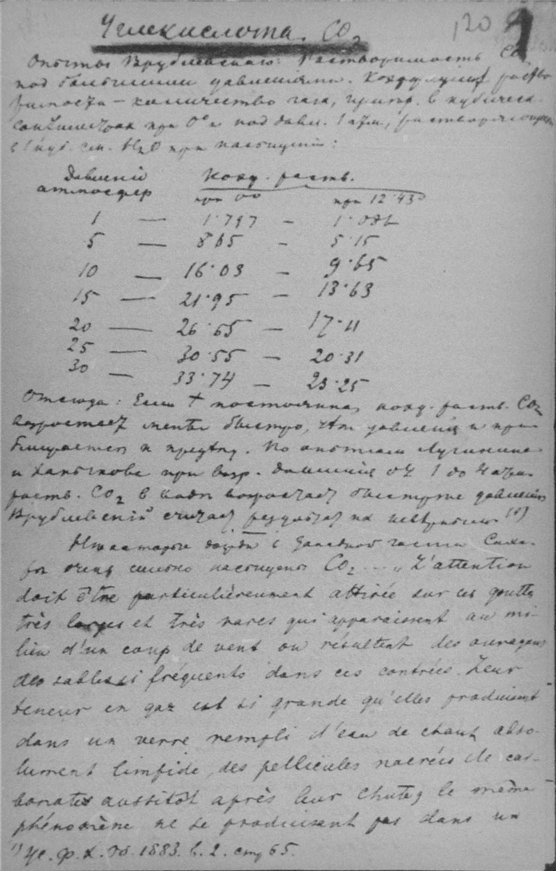 Углекислота. CO2
120
Опыты Врублевскаго: Растворимость CO2
под большими давленіями. Коэффиціент раство
римости – количество газа, в кубическ.
сантиметрах при 0° и под давл. 1 атм.,
с 1 куб. см. H2O при насыщеніи:
Давленій Коэф. раств.
атмосфер при 0° при 12°43
1 — 1·797 – 1·086
5 — 8·65 – 5·15
10 — 16·03 – 9·65
15 — 21·95 – 13·63
20 — 26·65 – 17·11
25 — 30·55 – 20·31
30 — 33·74 – 23·25
Отсюда: Если t постоянна, коэф. раств. CO2
возростает менее быстро, чем давленіе и при
ближается к пределу. По опытам Лугинина
и Ханыкова при возр. давленія от 1 до 4 атм.
раств. CO2 в воде возростает быстрее давленія
Врублевскій считает на
Некоторые дожди в Западной части Саха
ры очень сильно насыщены CO2 ... „L'attention
doit être particulièrement attirée sur ces gouttes
très larges et très rares qui apparaissent au mi-
lieu d'un coup de vent ou résultent des ouragans
des sables si fréquents dans ces contrées. Leur
teneur en gaz est si grande qu'elles produisent
dans un verre rempli d'eau de chaux abso-
lument limpide, des pellicules nacrées de car-
bonates aussitôt après leur chute; le même
phénomène ne se produisent pas dans un
1883. в. 2. стр 65.